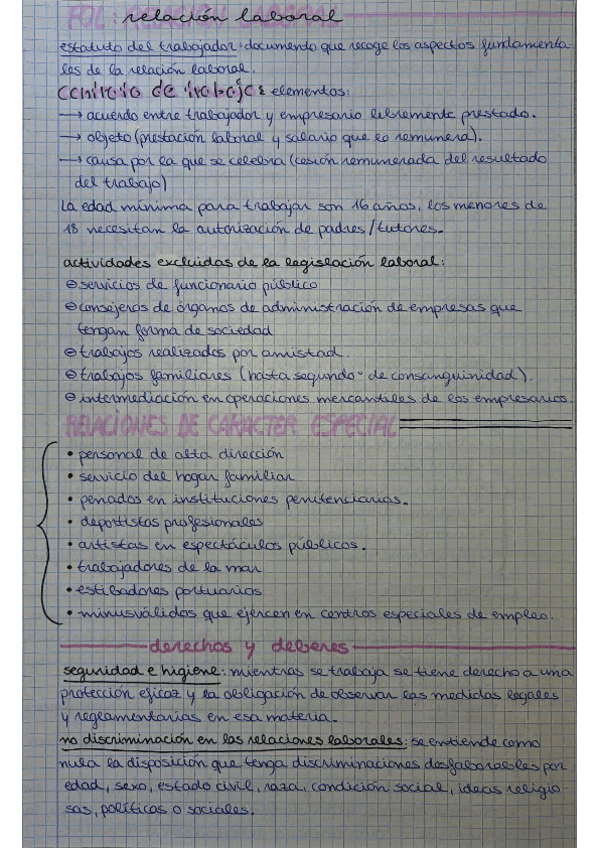 FOL: RELACIÓN LABORAL
relación laboral
estatuto del trabajador: documento que recoge los aspectos fundamenta-
les de la relación laboral.
contrato de trabajo: elementos:
→ acuerdo entre trabajador y empresario libremente prestado.
→ objeto (prestación laboral y salario que lo remunera).
→ causa por la que se celebra (cesión remunerada del resultado
del trabajo)
La edad mínima para trabajar son 16 años, los menores de
18 necesitan la autorización de padres/tutores.
actividades excluidas de la legislación laboral:
⊖ servicios de funcionario público
⊖ consejeros de órganos de administración de empresas que
tengan forma de sociedad
⊖ trabajos realizados por amistad.
⊖ trabajos familiares (hasta segundo º de consanguinidad).
⊖ intermediación en operaciones mercantiles de los empresarios.
RELACIONES DE CARACTER ESPECIAL
• personal de alta dirección
• servicio del hogar familiar
• penados en instituciones penitenciarias.
• deportistas profesionales
• artistas en espectáculos públicos.
• trabajadores de la mar
• estibadores portuarios
• minusválidos que ejercen en centros especiales de empleo.
derechos y deberes
seguridad e higiene: mientras se trabaja se tiene derecho a una
protección eficaz y la obligación de observar las medidas legales
y reglamentarias en esa materia.
no discriminación en las relaciones laborales: se entiende como
nula la disposición que tenga discriminaciones desfaborables por
edad, sexo, estado civil, raza, condición social, ideas religio-
sas, políticas o sociales.